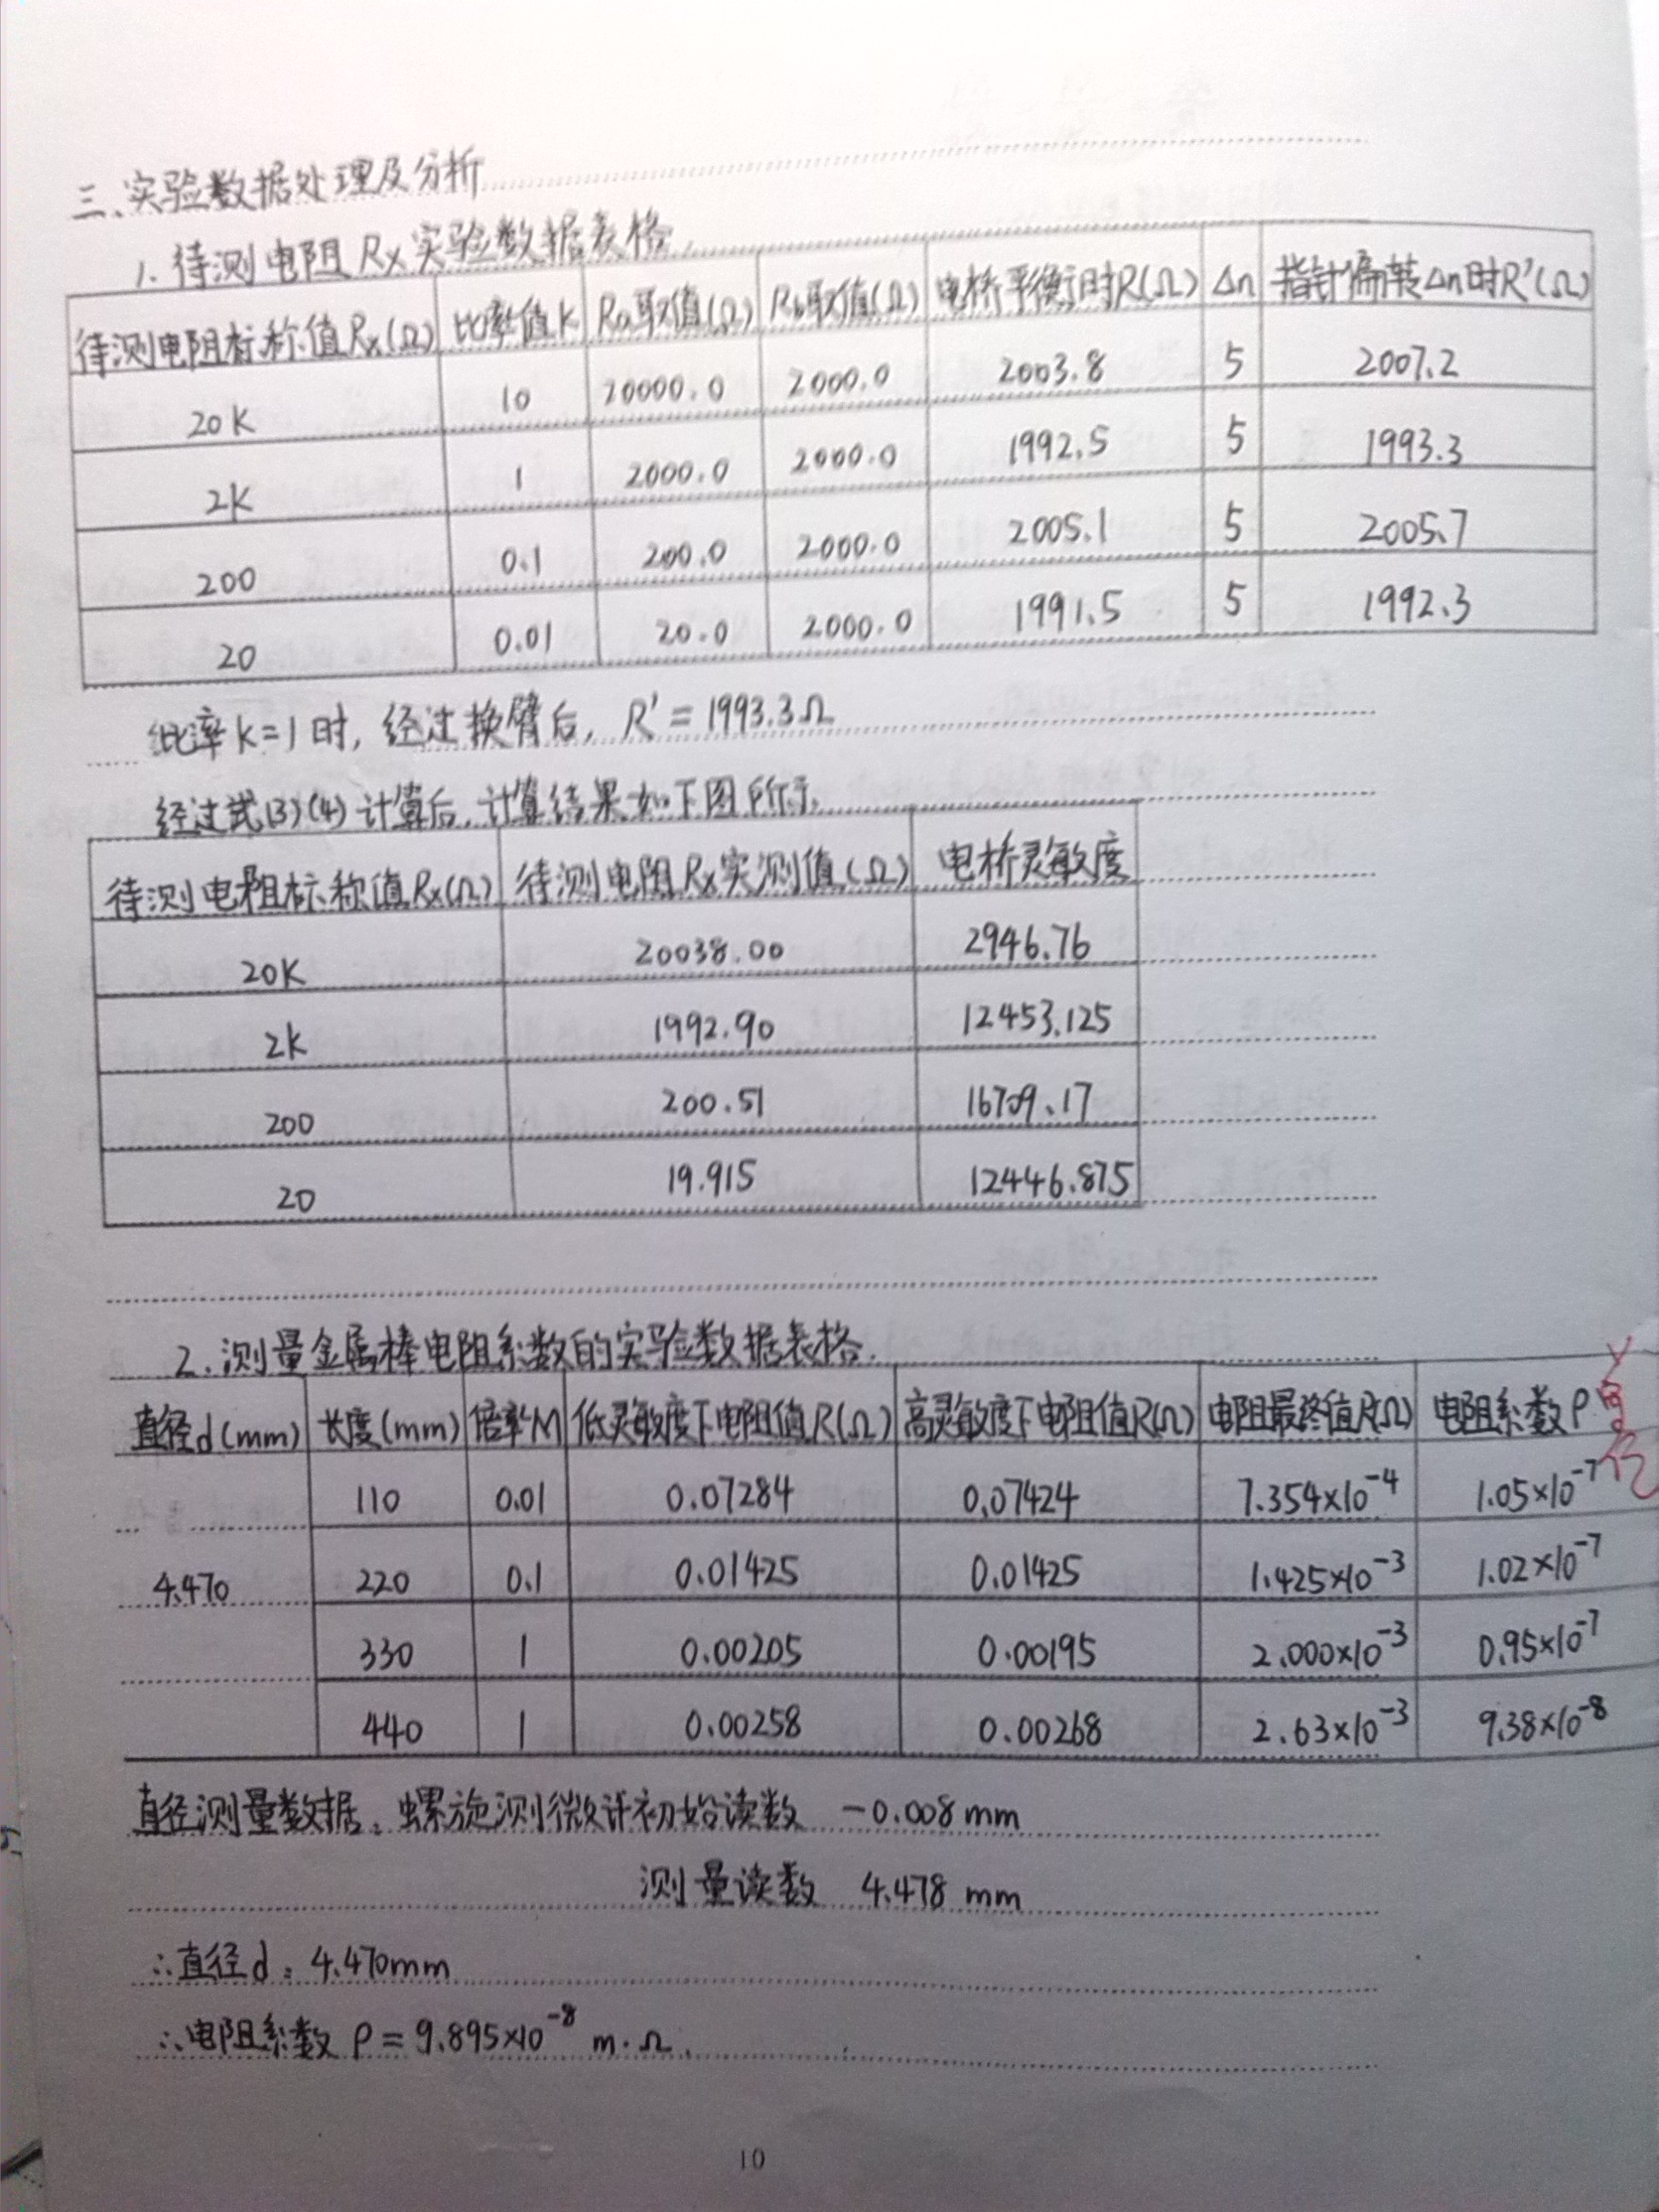 三、实验数据处理及分析
1. 待测电阻Rx实验数据表格.
待测电阻标称值Rx(Ω) 比率值K Ra取值(Ω) Rb取值(Ω) 电桥平衡时R(Ω) Δn 指针偏转Δn时R'(Ω)
20K 10 20000.0 2000.0 2003.8 5 2007.2
2K 1 2000.0 2000.0 1992.5 5 1993.3
200 0.1 200.0 2000.0 2005.1 5 2005.7
20 0.01 20.0 2000.0 1991.5 5 1992.3
比率K=1时, 经过换臂后, R'=1993.3Ω
经过式(3)(4)计算后, 计算结果如下图所示.
待测电阻标称值Rx(Ω) 待测电阻Rx实测值(Ω) 电桥灵敏度
20K 20038.00 2946.76
2K 1992.90 12453.125
200 200.51 16709.17
20 19.915 12446.875
2. 测量金属棒电阻系数的实验数据表格.
直径d(mm) 长度(mm) 倍率M 低灵敏度下电阻值R(Ω) 高灵敏度下电阻值R(Ω) 电阻最终值R(Ω) 电阻系数ρ
110 0.01 0.07284 0.07424 7.354×10⁻⁴ 1.05×10⁻⁷
4.470 220 0.1 0.01425 0.01425 1.425×10⁻³ 1.02×10⁻⁷
330 1 0.00205 0.00195 2.000×10⁻³ 0.95×10⁻⁷
440 1 0.00258 0.00268 2.63×10⁻³ 9.38×10⁻⁸
直径测量数据: 螺旋测微计初始读数 -0.008mm
测量读数 4.478 mm
∴直径d: 4.470mm
∴电阻系数 ρ=9.895×10⁻⁸ m·Ω.
10